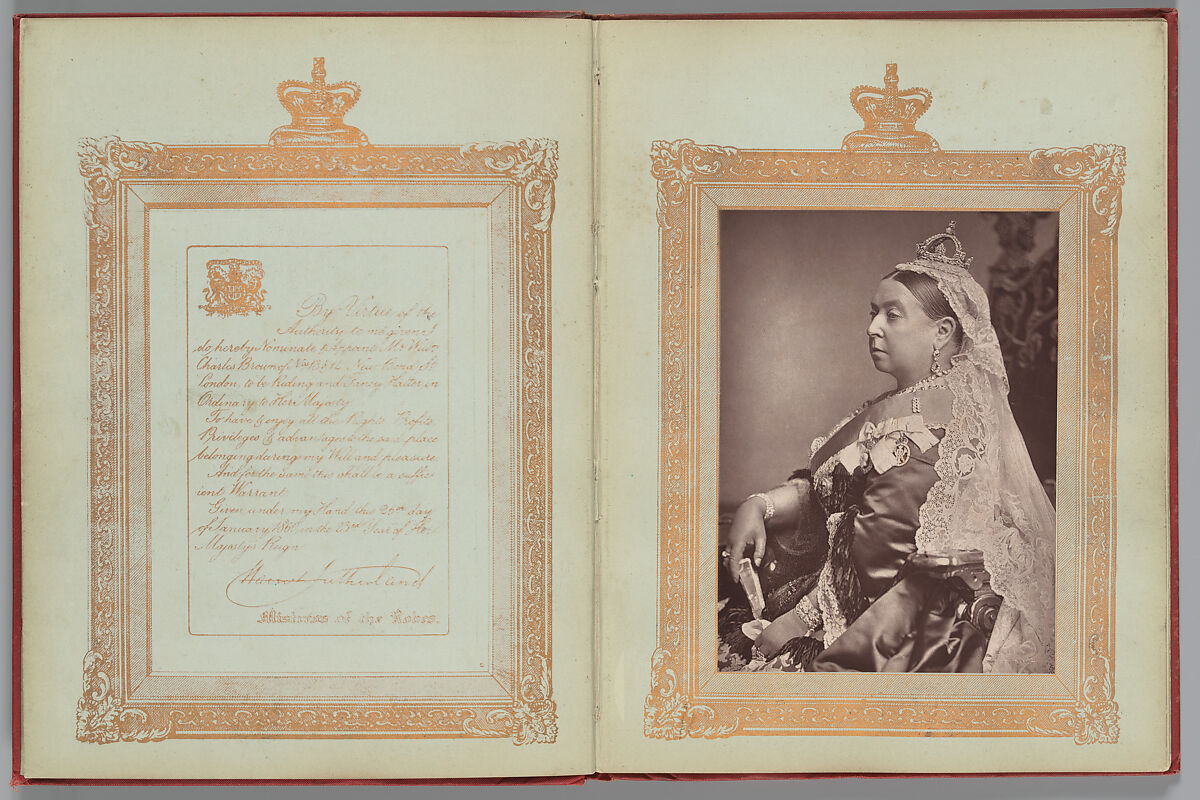 By Virtue of the
Authority to me given I
do hereby Nominate & Appoint Mr Willm
Charles Brown of Nos 13 & 14 New Bond St
London, to be Riding and Fancy Hatter in
Ordinary to Her Majesty
To have & enjoy all the Rights Profits
Privileges & advantages to the said place
belonging during my Will and pleasure.
And for the same this shall be a suffic
ient Warrant
Given under my Hand this 20th day
of January 1860 in the 23rd Year of Her
Majestys Reign
Harriet Sutherland
Mistress of the Robes.